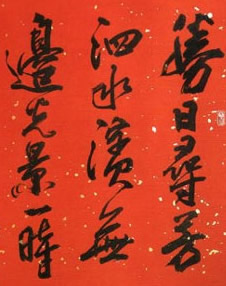 勝日尋芳
泗水濱無
邊光景一時